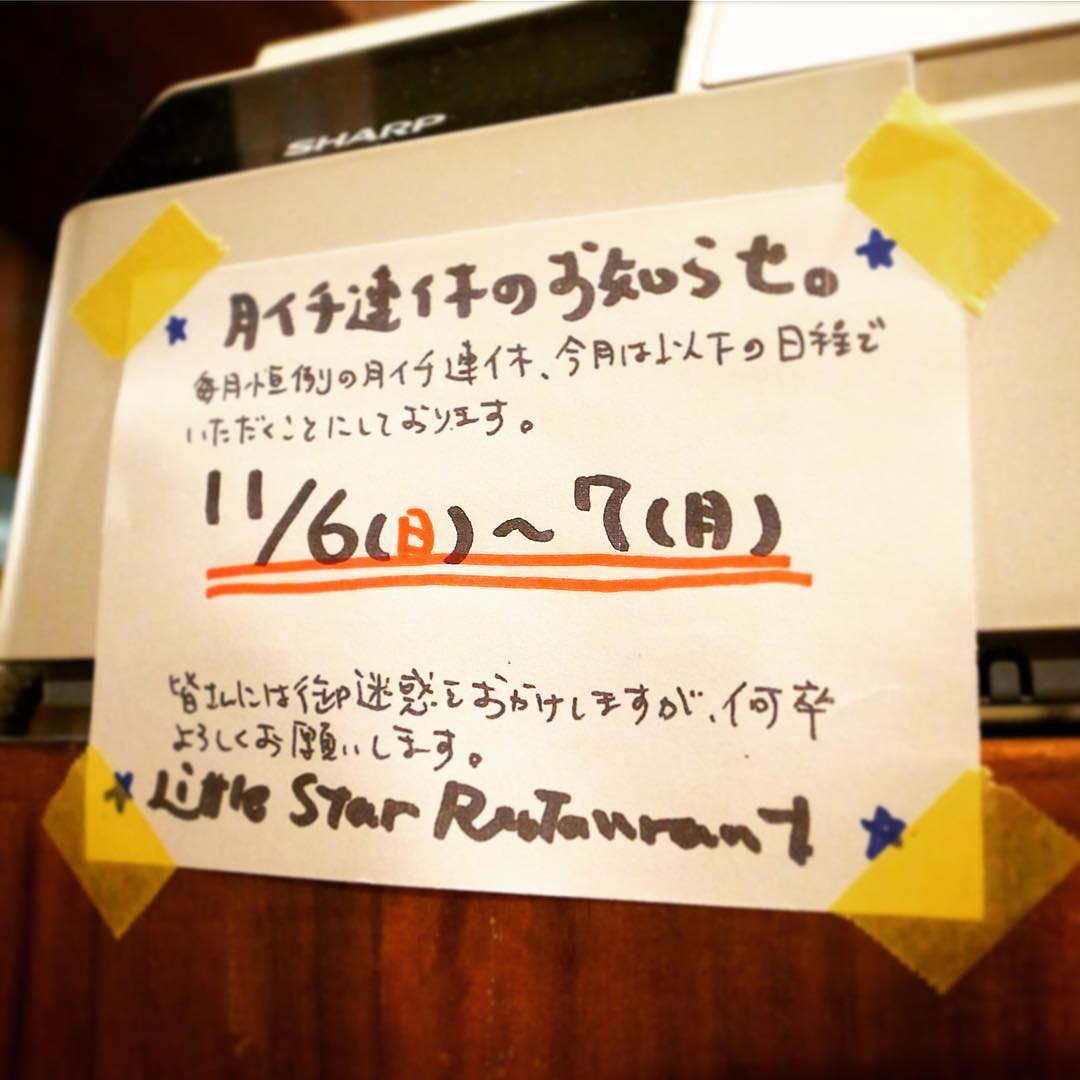 SHARP
月イチ連休のお知らせ。
毎月恒例の月イチ連休、今月は以下の日程で
いただくことにしております。
11/6(日)～7(月)
皆さんには御迷惑をおかけしますが、何卒
よろしくお願いします。
Little Star Restaurant